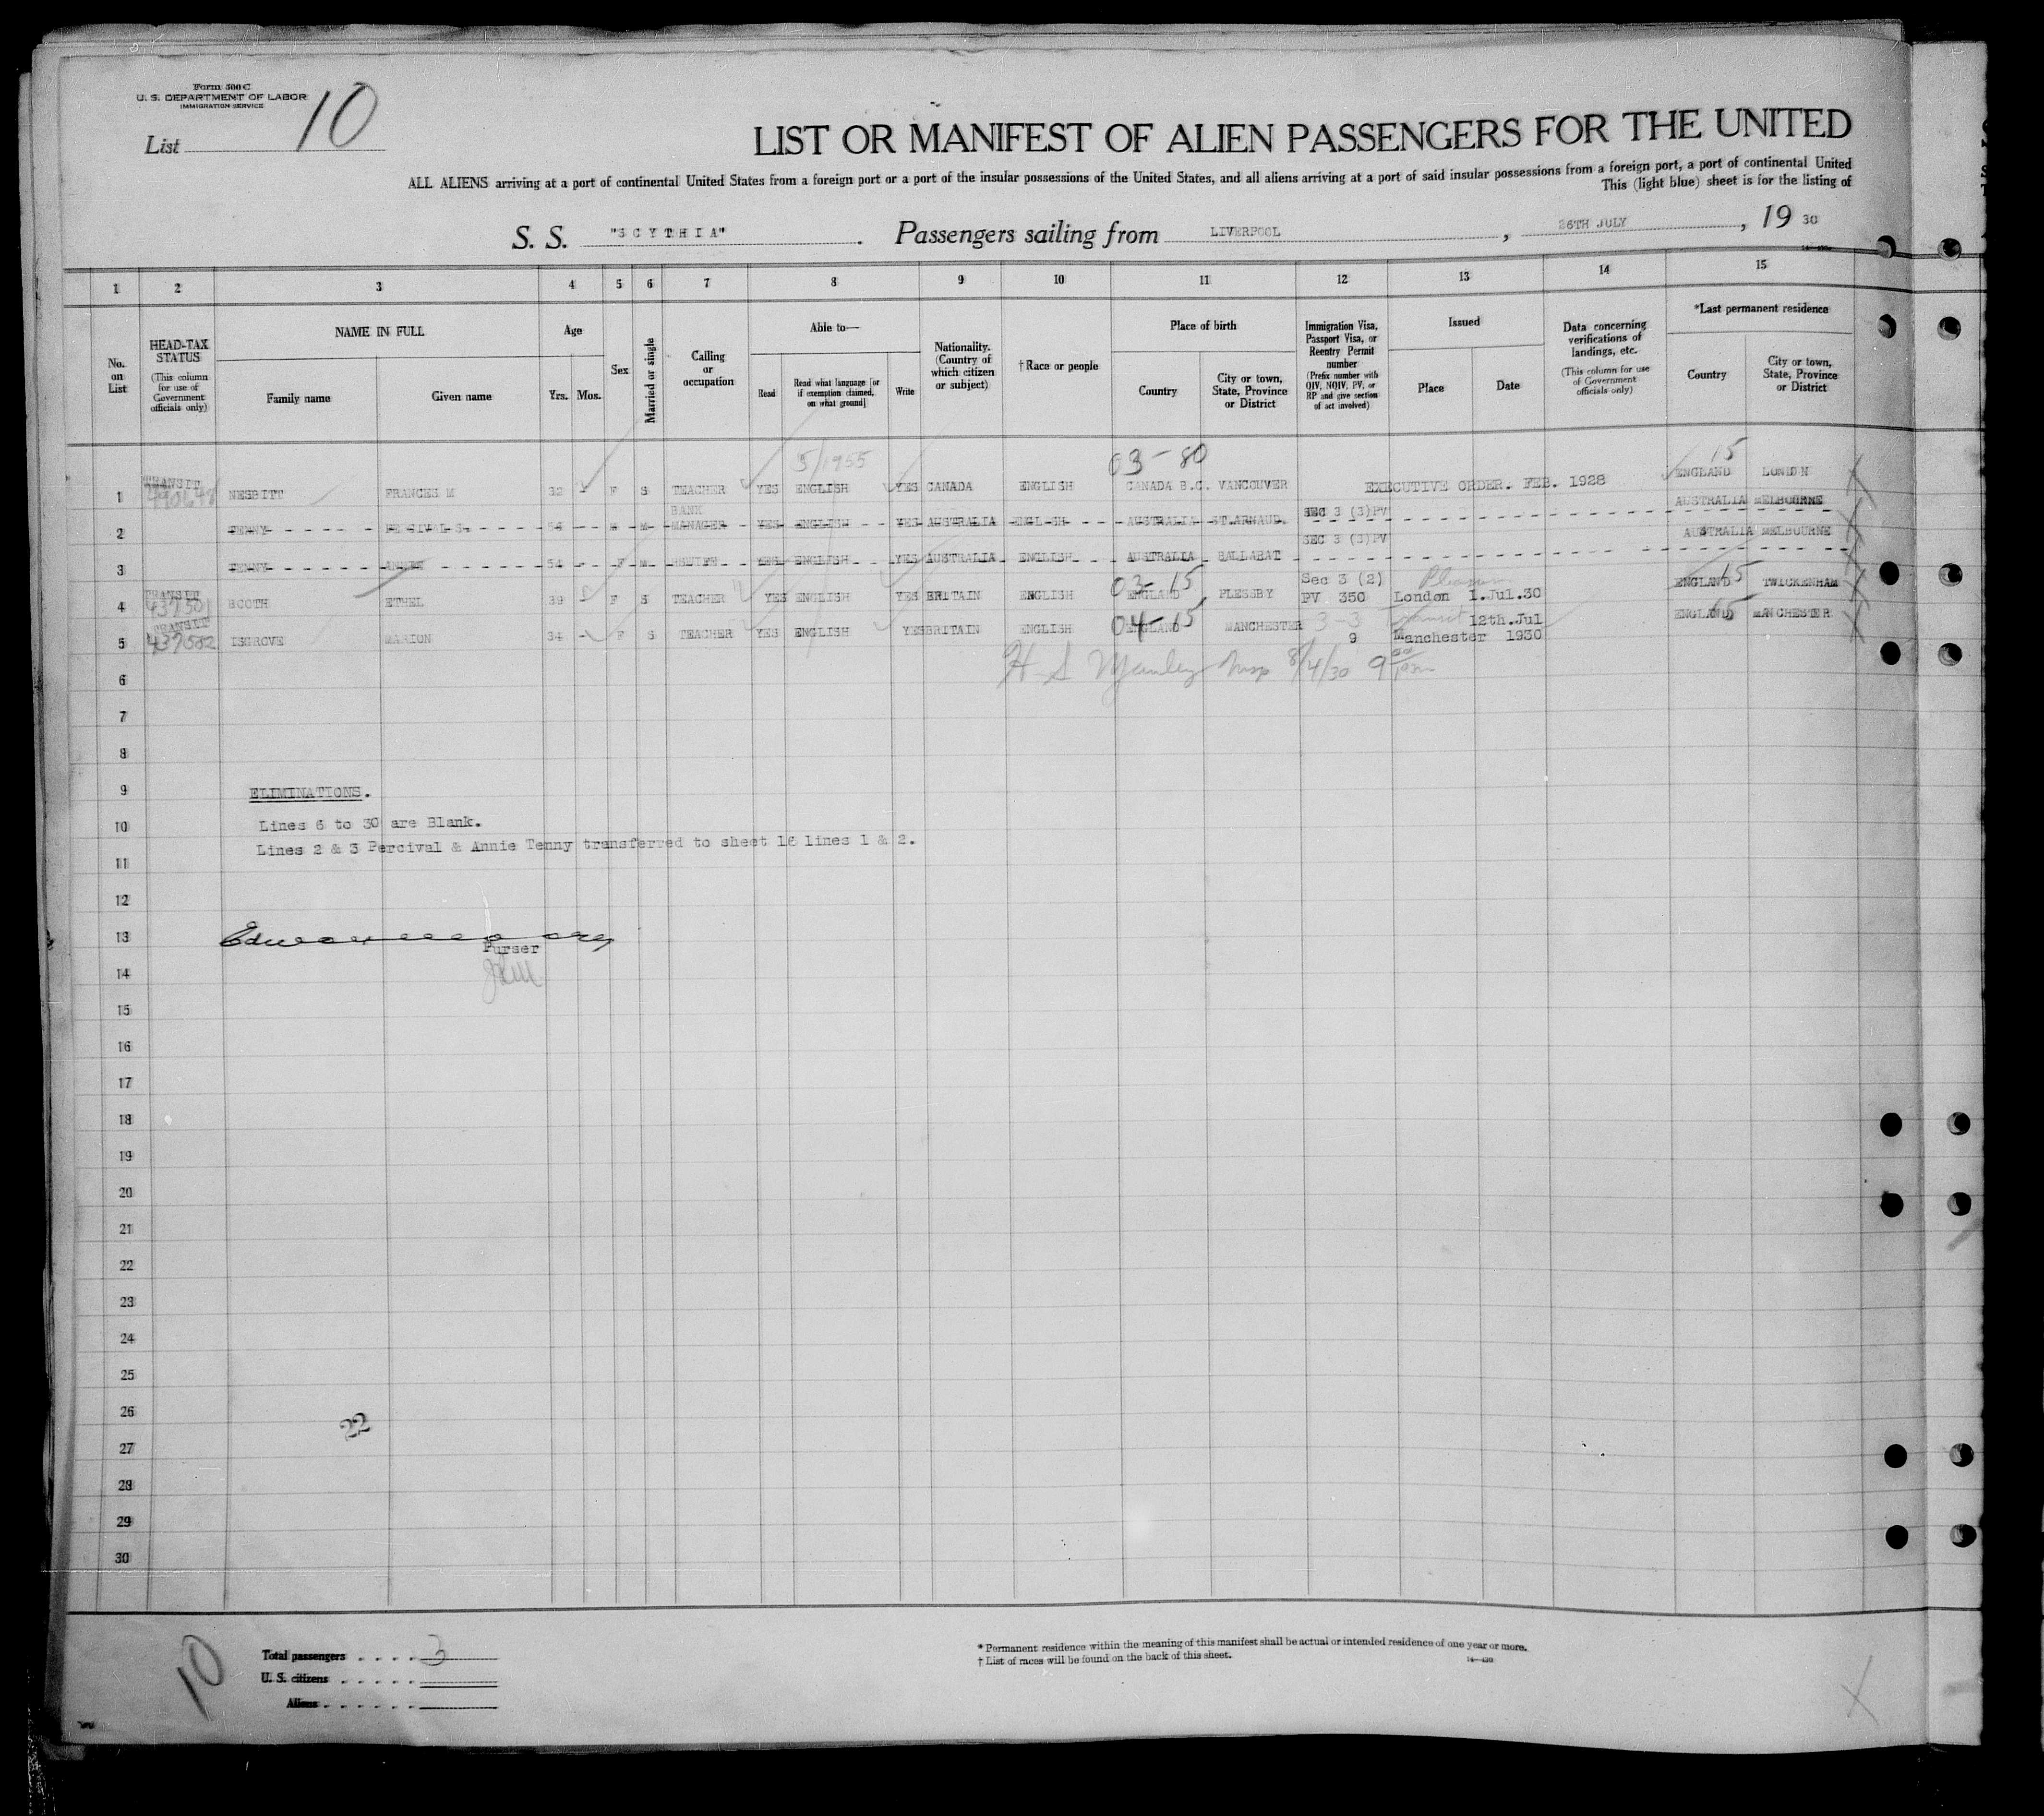 Form 500 C
U. S. DEPARTMENT OF LABOR
IMMIGRATION SERVICE
List 10
LIST OR MANIFEST OF ALIEN PASSENGERS FOR THE UNITED
ALL ALIENS arriving at a port of continental United States from a foreign port or a port of the insular possessions of the United States, and all aliens arriving at a port of said insular possessions from a foreign port, a port of continental United
This (light blue) sheet is for the listing of
S. S. "SCYTHIA". Passengers sailing from LIVERPOOL, 26TH JULY, 19 30
1 2 3 4 5 6 7 8 9 10 11 12 13 14 15
No. on List
HEAD-TAX STATUS (This column for use of Government officials only)
NAME IN FULL
Family name
Given name
Age
Yrs. Mos.
Sex
Married or single
Calling or occupation
Able to—
Read
Read what language [or if exemption claimed, on what ground]
Write
Nationality. (Country of which citizen or subject)
† Race or people
Place of birth
Country
City or town, State, Province or District
Immigration Visa, Passport Visa, or Reentry Permit number (Prefix number with QIV, NQIV, PV, or RP and give section of act involved)
Issued
Place
Date
Data concerning verifications of landings, etc. (This column for use of Government officials only)
*Last permanent residence
Country
City or town, State, Province or District
5/1955 03-80 15
1 TRANSIT NESBITT FRANCES M 32 - F S TEACHER YES ENGLISH YES CANADA ENGLISH CANADA B.C. VANCOUVER EXECUTIVE ORDER. FEB. 1928 ENGLAND LONDON
2 TENNY PERCIVAL S. 56 M M BANK MANAGER YES ENGLISH YES AUSTRALIA ENGLISH AUSTRALIA ST.ARNAUD. SEC 3 (3)PV AUSTRALIA MELBOURNE
3 TENNY ANNIE 54 - F M YES ENGLISH YES AUSTRALIA ENGLISH AUSTRALIA BALLARAT SEC 3 (3)PV AUSTRALIA MELBOURNE
03-15 Pleasure 15
4 TRANSIT 437501 BOOTH ETHEL 39 F S TEACHER YES ENGLISH YES BRITAIN ENGLISH ENGLAND PLESSBY Sec 3 (2) PV 350 London 1.Jul.30 ENGLAND TWICKENHAM
04-15 3-3 Transit 15
5 TRANSIT 437502 ISGROVE MARION 34 - F S TEACHER YES ENGLISH YES BRITAIN ENGLISH ENGLAND MANCHESTER 9 Manchester 12th.Jul 1930 ENGLAND MANCHESTER
6 H S Manley Insp 8/4/30 9
7
8
9 ELIMINATIONS.
10 Lines 6 to 30 are Blank.
11 Lines 2 & 3 Percival & Annie Tenny transferred to sheet 16 lines 1 & 2.
12
13
Purser
14
15
16
17
18
19
20
21
22
23
24
25
26
22
27
28
29
30
10
Total passengers . . . . 3
U. S. citizens . . . . .
Aliens . . . . . .
* Permanent residence within the meaning of this manifest shall be actual or intended residence of one year or more.
† List of races will be found on the back of this sheet.